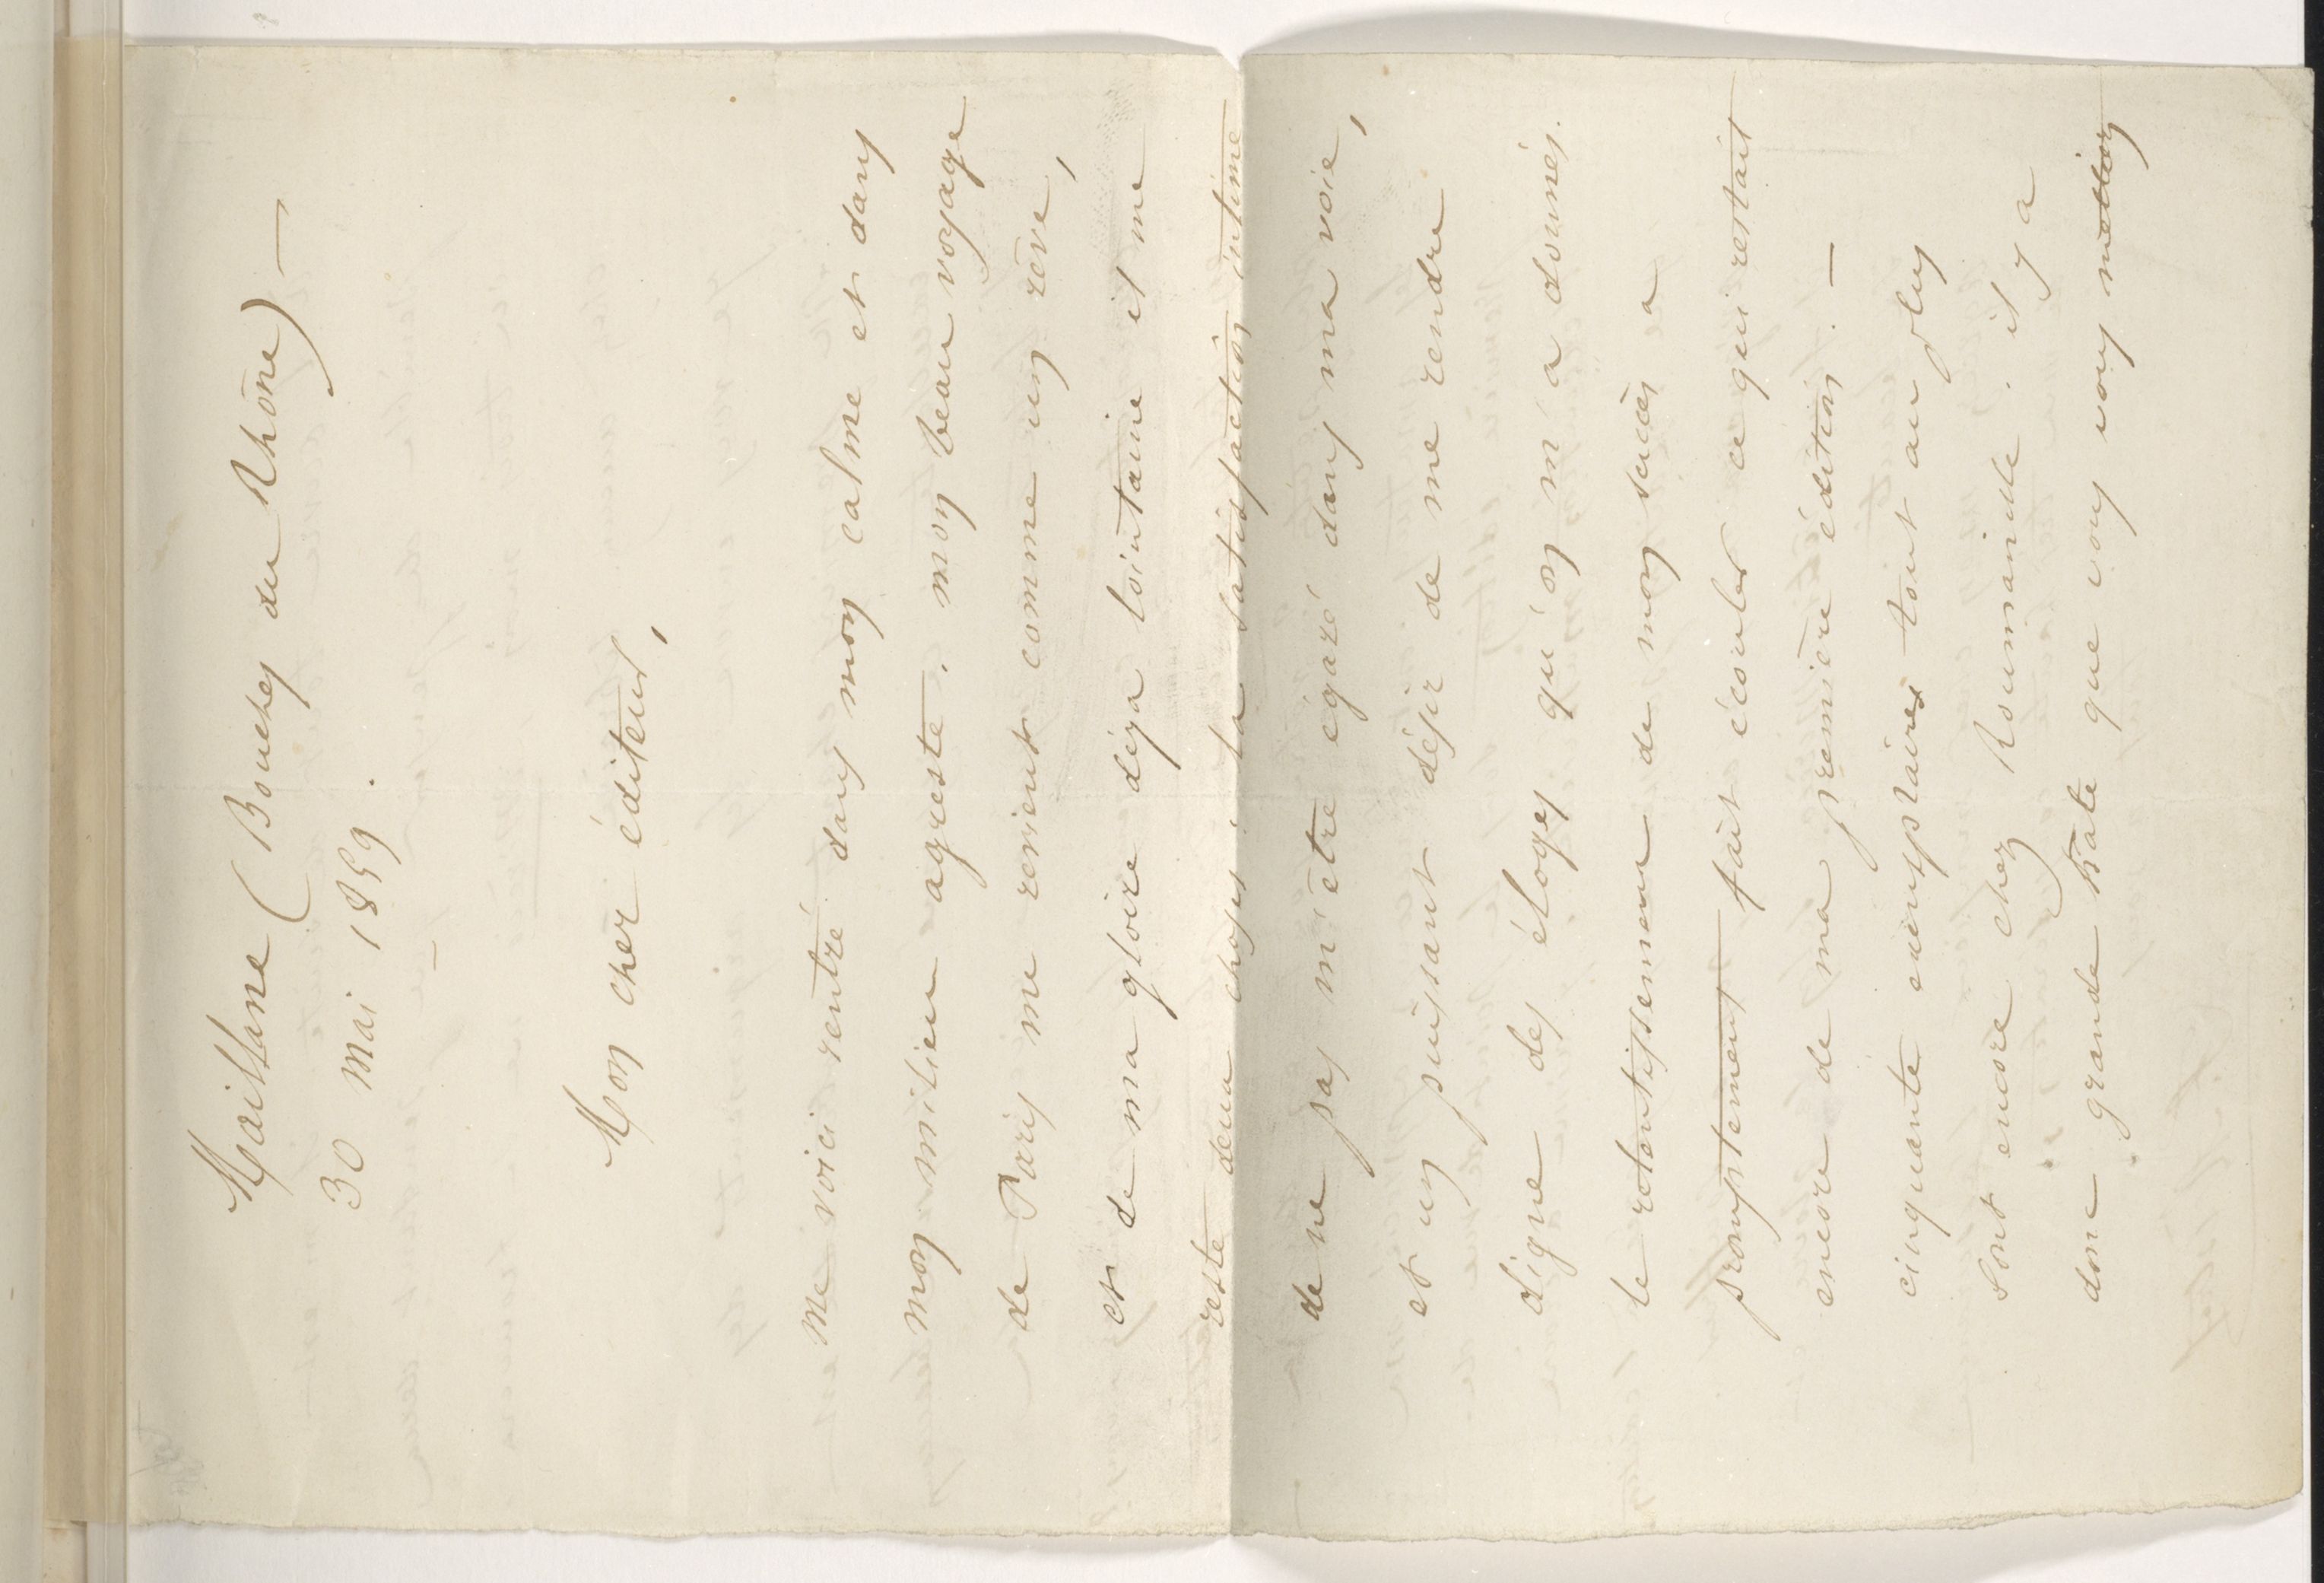 Maillane (Bouches du Rhône) —
30 mai 1859.
—
Mon cher éditeur,
me voici rentré dans mon calme et dans
mon milieu agreste. mon beau voyage
de Paris me revient comme un rêve,
et de ma gloire déja lointaine il me
reste deux choses : la satisfaction intime
de ne pas m'être égaré dans ma voie,
et un puissant désir de me rendre
digne des éloges qu'on m'a donnés.
le retentissement de mon succès a
promptement fait écouler ce qui restait
encore de ma première édition. —
cinquante exemplaires tout au plus
sont encore chez Roumanille. il y a
donc grande hâte que vous vous mettiez